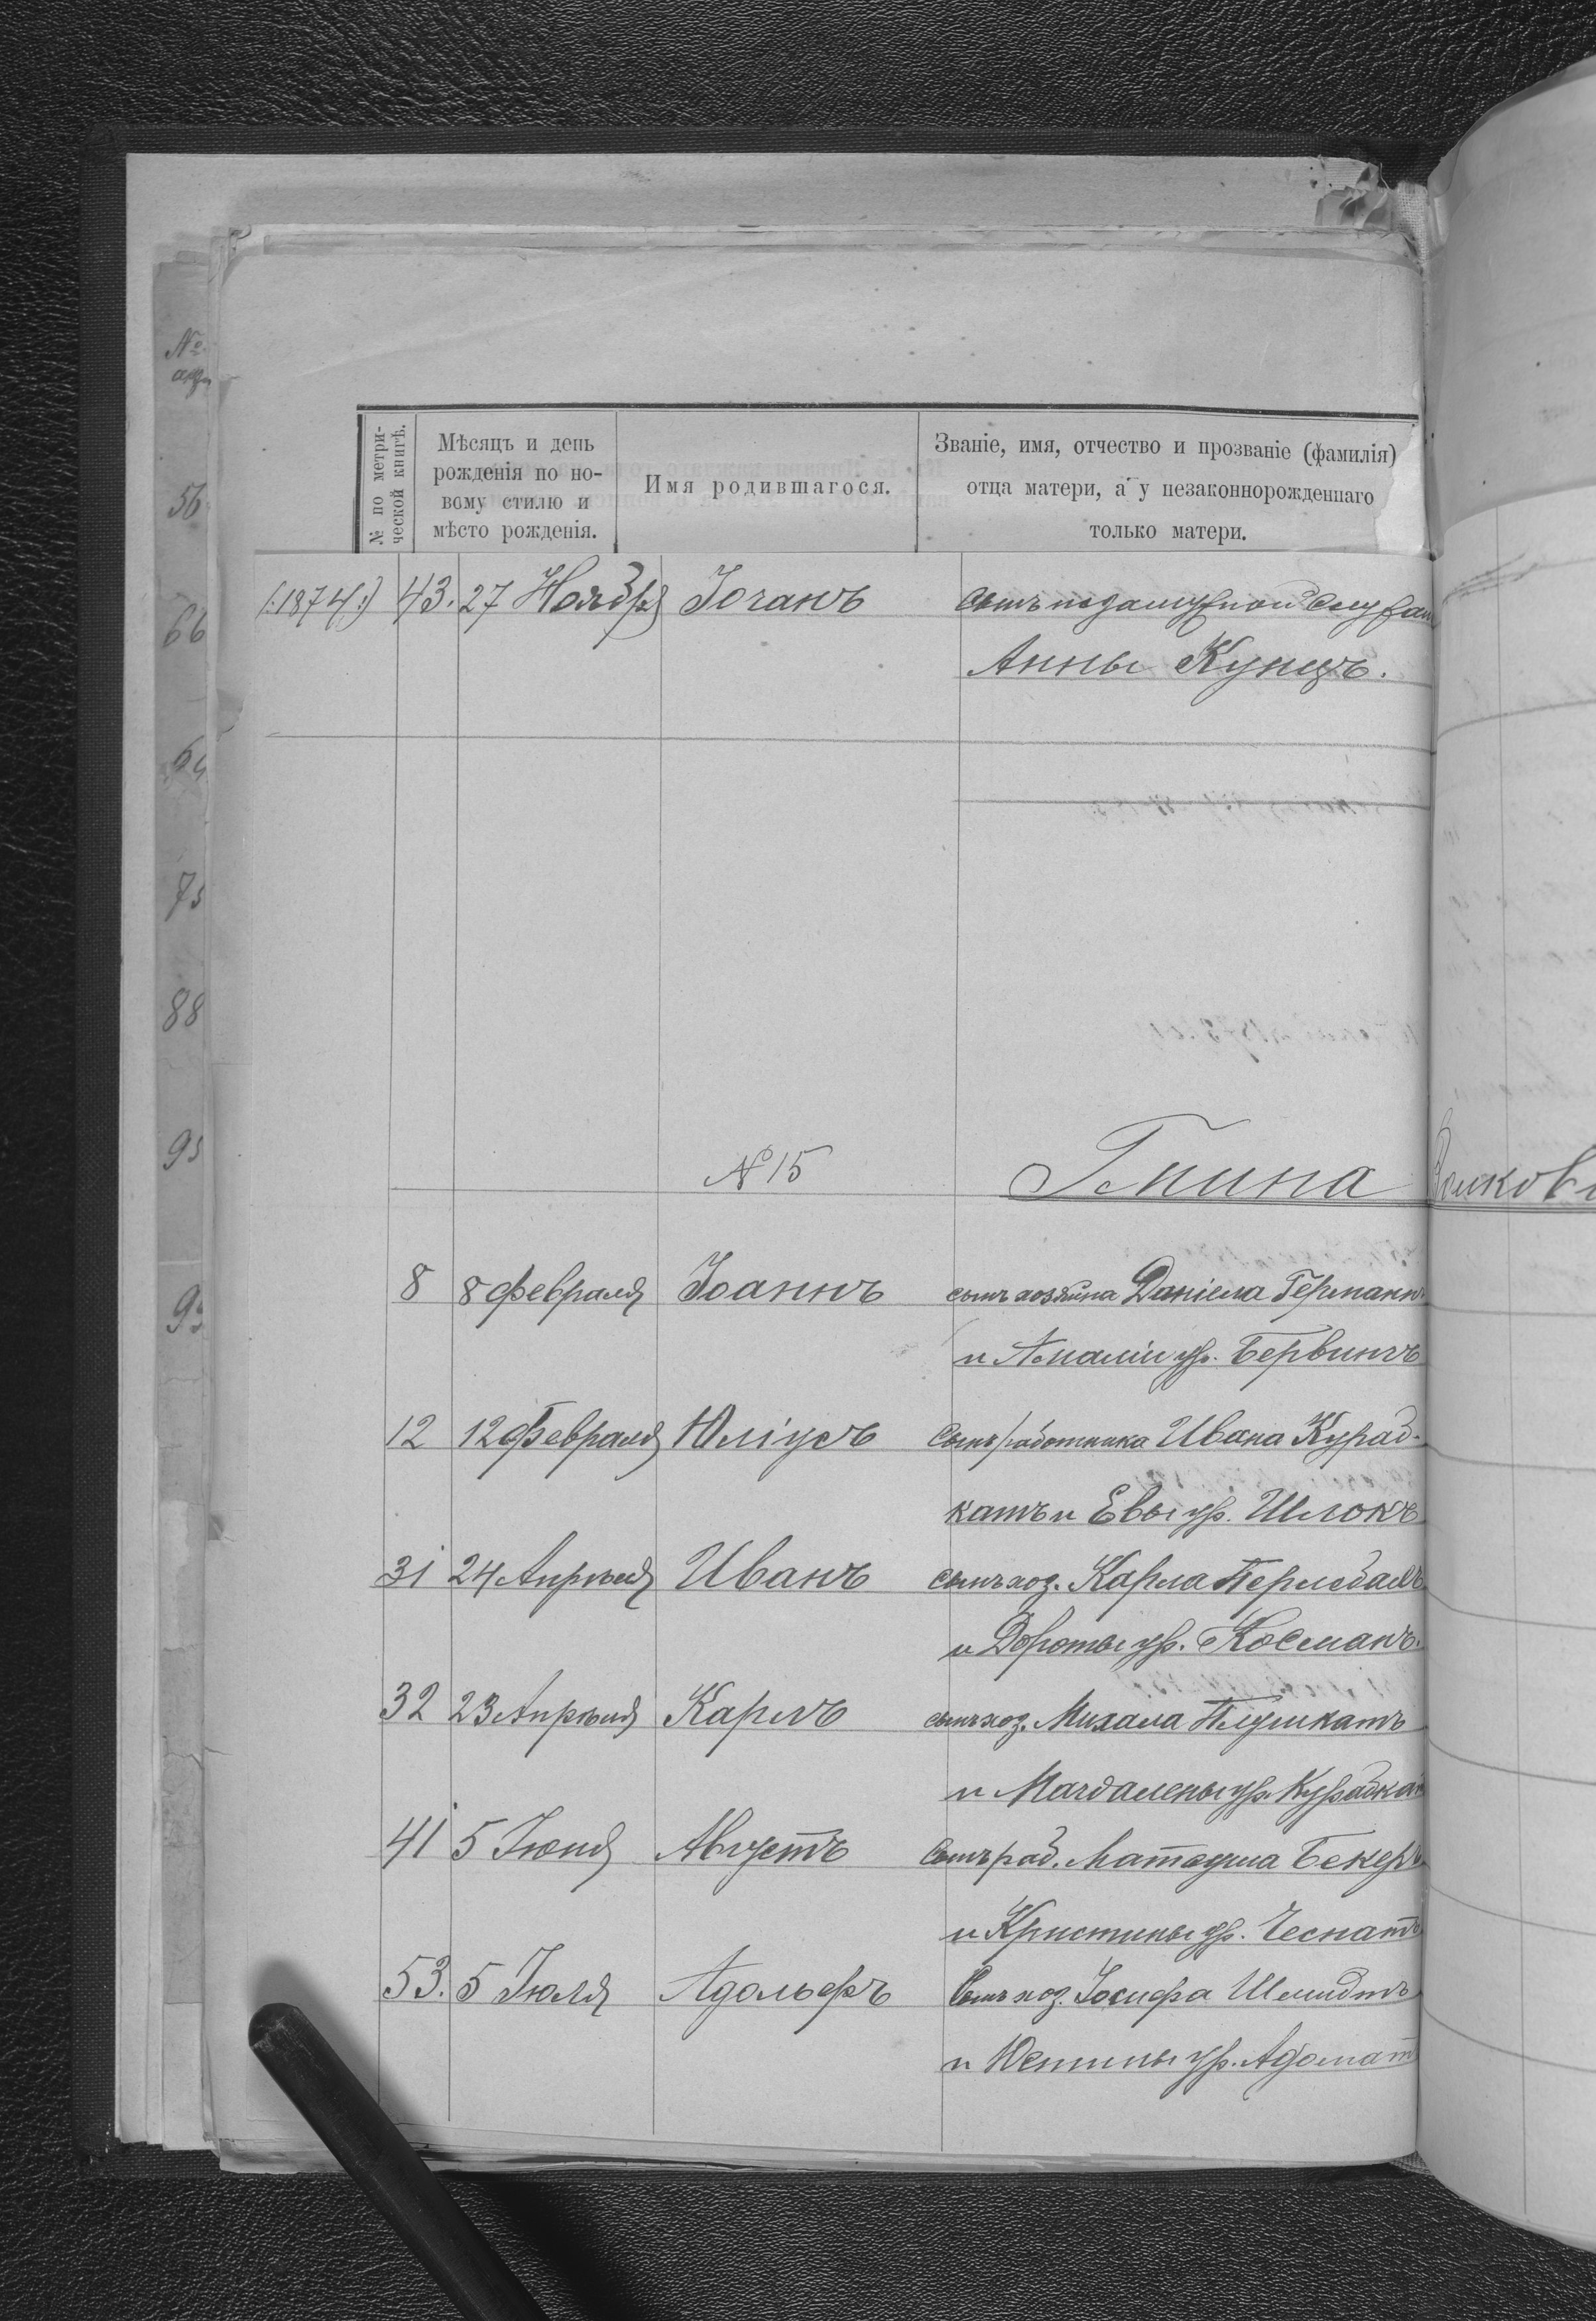 №
56
66
94
75
88
95
№ по метри-
ческой книгѣ.
Мѣсяцъ и день
рожденія по но-
вому стилю и
мѣсто рожденія.
Имя родившагося.
Званіе, имя, отчество и прозваніе (фамилія)
отца матери, а у незаконнорожденнаго
только матери.
(:1874:) 43. 27 Ноября Іоганъ сынъ незамужной
Анны Кунцъ.
№ 15 Гмина
8 8 февраля Іоаннъ сынъ хозяина Даніела Германъ
и Амаліи ур. Бервингъ
12 12 Февраля Юліусъ сынъ работника Ивана Курад-
катъ и Евы ур. Шлокъ
31 24 Апрѣля Иванъ сынъ хоз. Карла
и Дороты ур. Косманъ.
32 23 Апрѣля Карлъ сынъ хоз. Михала Плушкатъ
и Магдалены ур. Курадкат
41 5 Іюня Августъ сынъ раб. Матеуша Бекеръ
и Кристины ур. Чеснатъ
53. 5 Іюля Адольфъ сынъ хоз. Іосифа Шмидтъ
и Юстины ур. Адомат